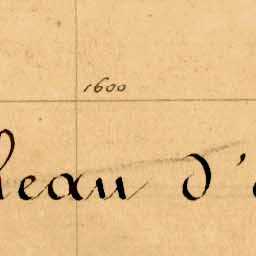 1600
eau d'